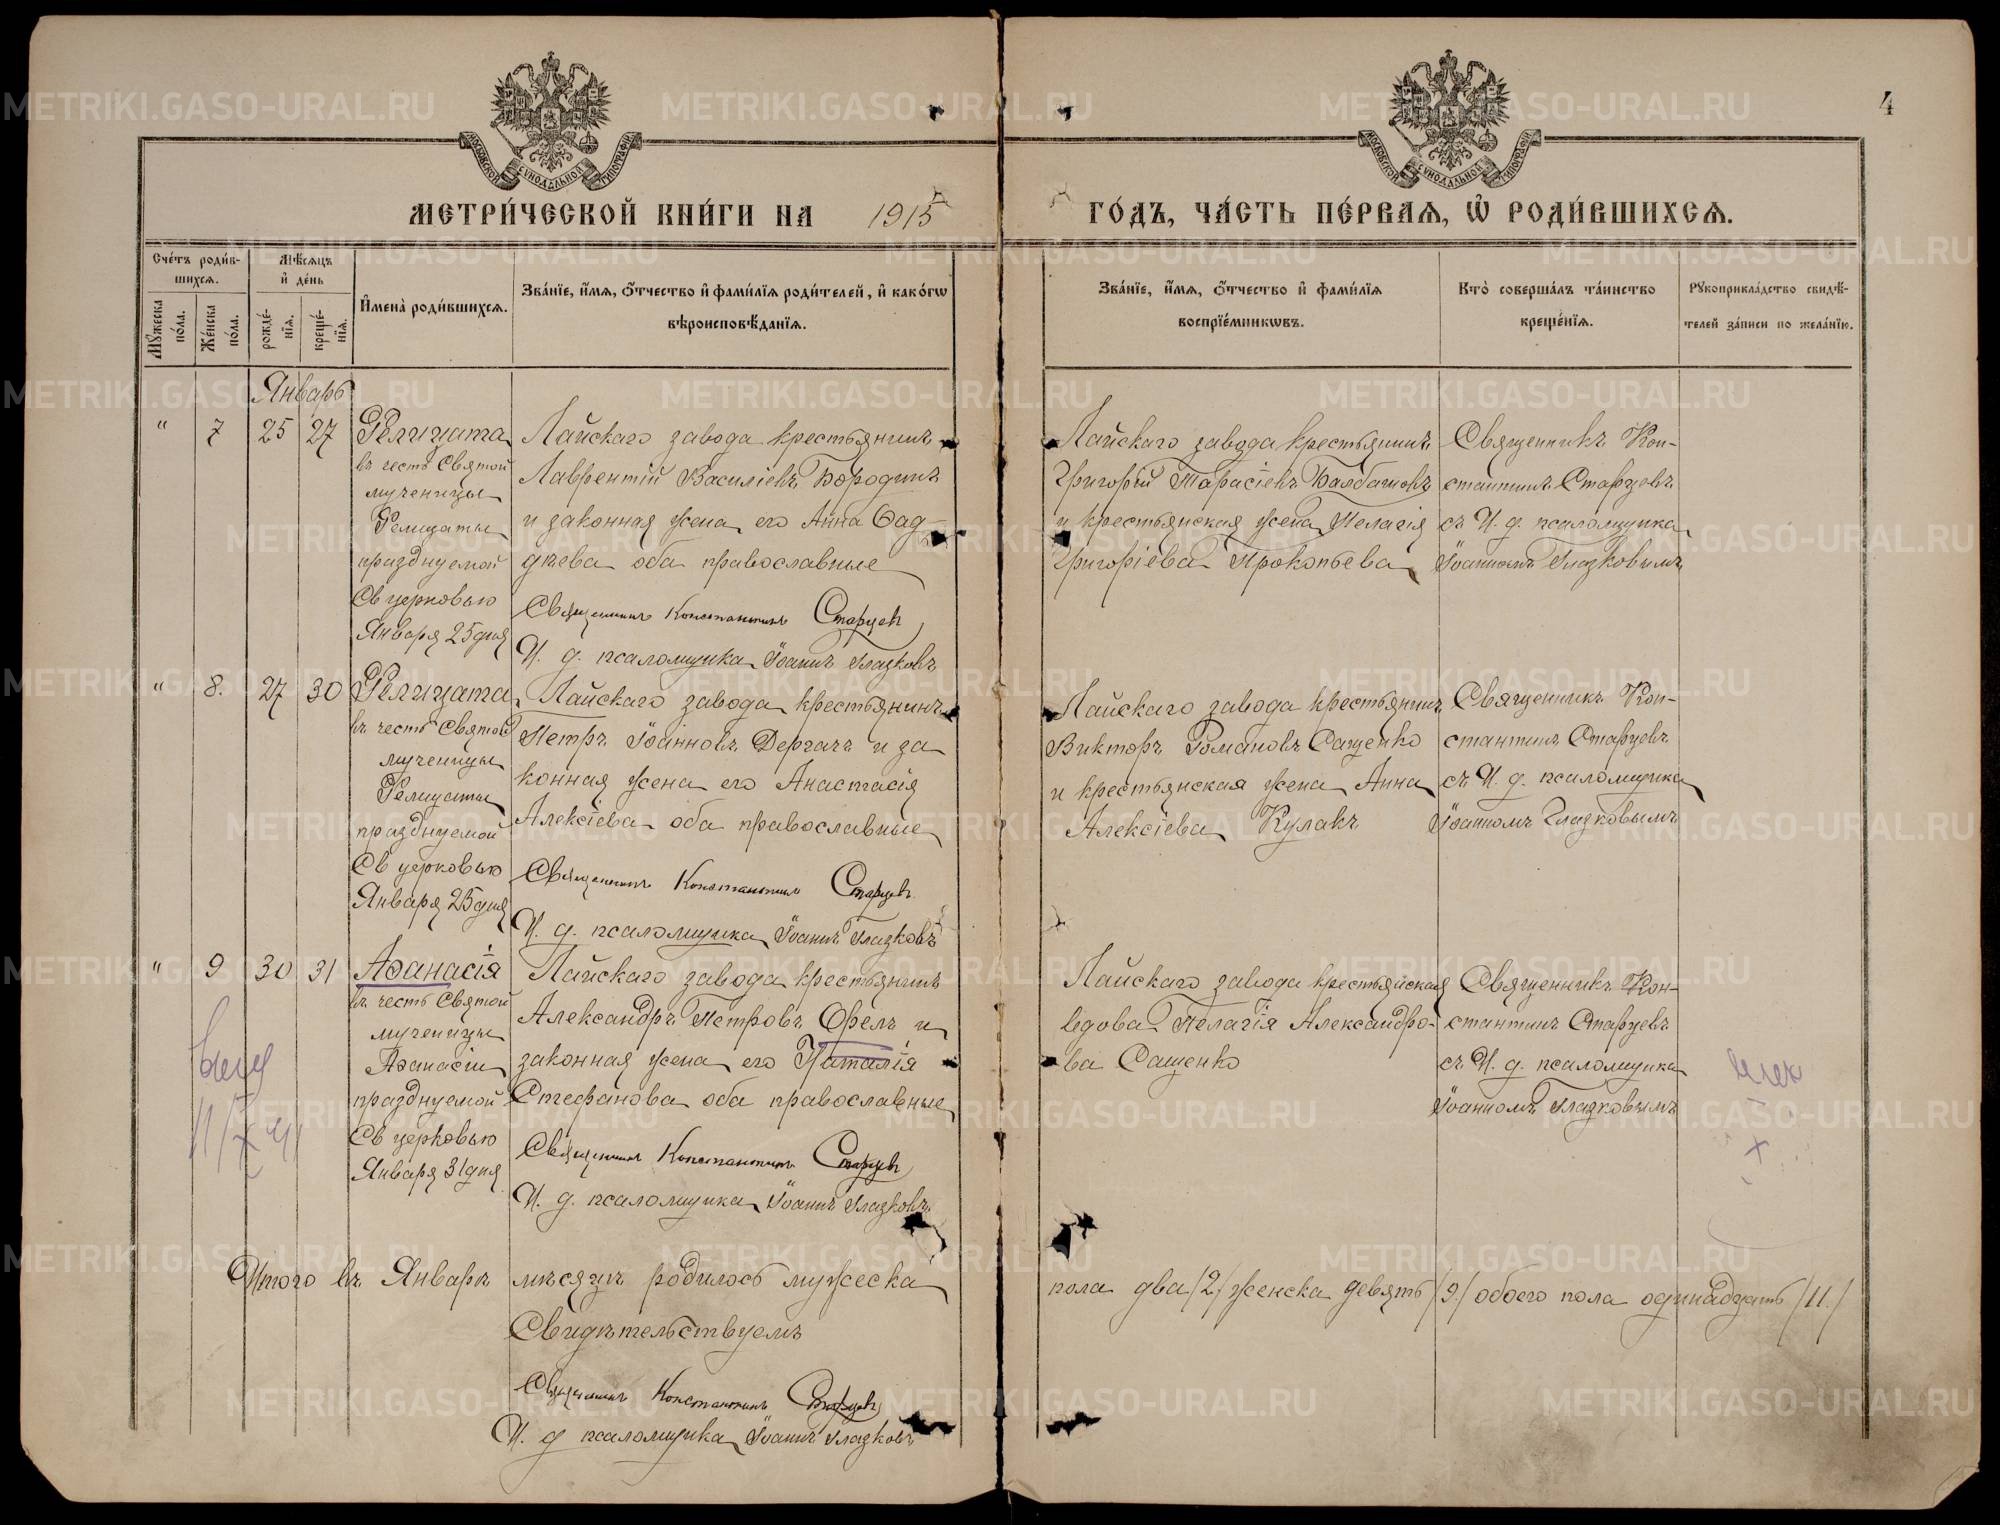 4
МОСКОВСКОЙ СѴНОДАЛЬНОЙ ТИПОГРАФІИ
МОСКОВСКОЙ СѴНОДАЛЬНОЙ ТИПОГРАФІИ
МЕТРИ́ЧЕСКОЙ КНИ́ГИ НА 1915 ГО́ДЪ, ЧА́СТЬ ПЕ́РВАЯ, Ѡ҆ РОДИ́ВШИХСЯ.
Сче́тъ роди́в-
шихся.
Мꙋ́жеска по́ла.
Же́нска по́ла.
Мѣ́сяцъ
и҆ де́нь
рожде́-
нїя.
креще́-
нїя.
И҆мена̀ роди́вшихся.
Зва́нїе, и҆́мя, ѻ҆́тчество и҆ фами́лїя роди́телей, и҆ како́гѡ
вѣроисповѣ́данїя.
Зва́нїе, и҆́мя, ѻ҆́тчество и҆ фами́лїя
воспрїе́мникѡвъ.
Кто̀ соверша́лъ та́инство
креще́нїя.
Рꙋкоприкла́дство свидѣ́-
телей за́писи по жела́нїю.
Январь
" 7 25 27
Фелицата
въ честь Святой
мученицы
Фелицаты
празднуемой
Св церковью
Января 25 дня
Лайскаго завода крестьянинъ
Лаврентій Василіевъ Бородинъ
и законная жена его Анна Фад-
дѣева оба православные
Священникъ Константинъ Старцевъ
И. д. псаломщика Іоаннъ Глазковъ
Лайскаго завода крестьянинъ
Григорій Тарасіевъ Балбашовъ
и крестьянская жена Пелагія
Григоріева Прокопьева
Священникъ Кон-
стантинъ Старцевъ
съ И. д. псаломщика
Іоанномъ Глазковымъ
" 8. 27 30
Фелицата
въ честь Святой
мученицы
Фелицаты
празднуемой
Св церковью
Января 25 дня
Лайскаго завода крестьянинъ
Петръ Іоанновъ Дергачъ и за
конная жена его Анастасія
Алексіева оба православные
Священникъ Константинъ Старцевъ
И. д. псаломщика Іоаннъ Глазковъ
Лайскаго завода крестьянинъ
Викторъ Романовъ Сащенко
и крестьянская жена Анна
Алексіева Кулакъ
Священникъ Кон-
стантинъ Старцевъ
съ И. д. псаломщика
Іоанномъ Глазковымъ
" 9 30 31
Аѳанасія
въ честь Святой
мученицы
Аѳанасіи
празднуемой
Св церковью
Января 31 дня
Лайскаго завода крестьянинъ
Александръ Петровъ Орелъ и
законная жена его Наталія
Стефанова оба православные
Священникъ Константинъ Старцевъ
И. д. псаломщика Іоаннъ Глазковъ
Лайскаго завода крестьянская
вдова Пелагія Александро-
ва Сащенко
Священникъ Кон-
стантинъ Старцевъ
съ И. д. псаломщика
Іоанномъ Глазковымъ
Итого въ Январѣ мѣсяцѣ родилось мужеска пола два /2/ женска девять /9/ обоего пола одинадцать /11./
Свидѣтельствуемъ
Священникъ Константинъ Старцевъ
И. д псаломщика Іоаннъ Глазковъ